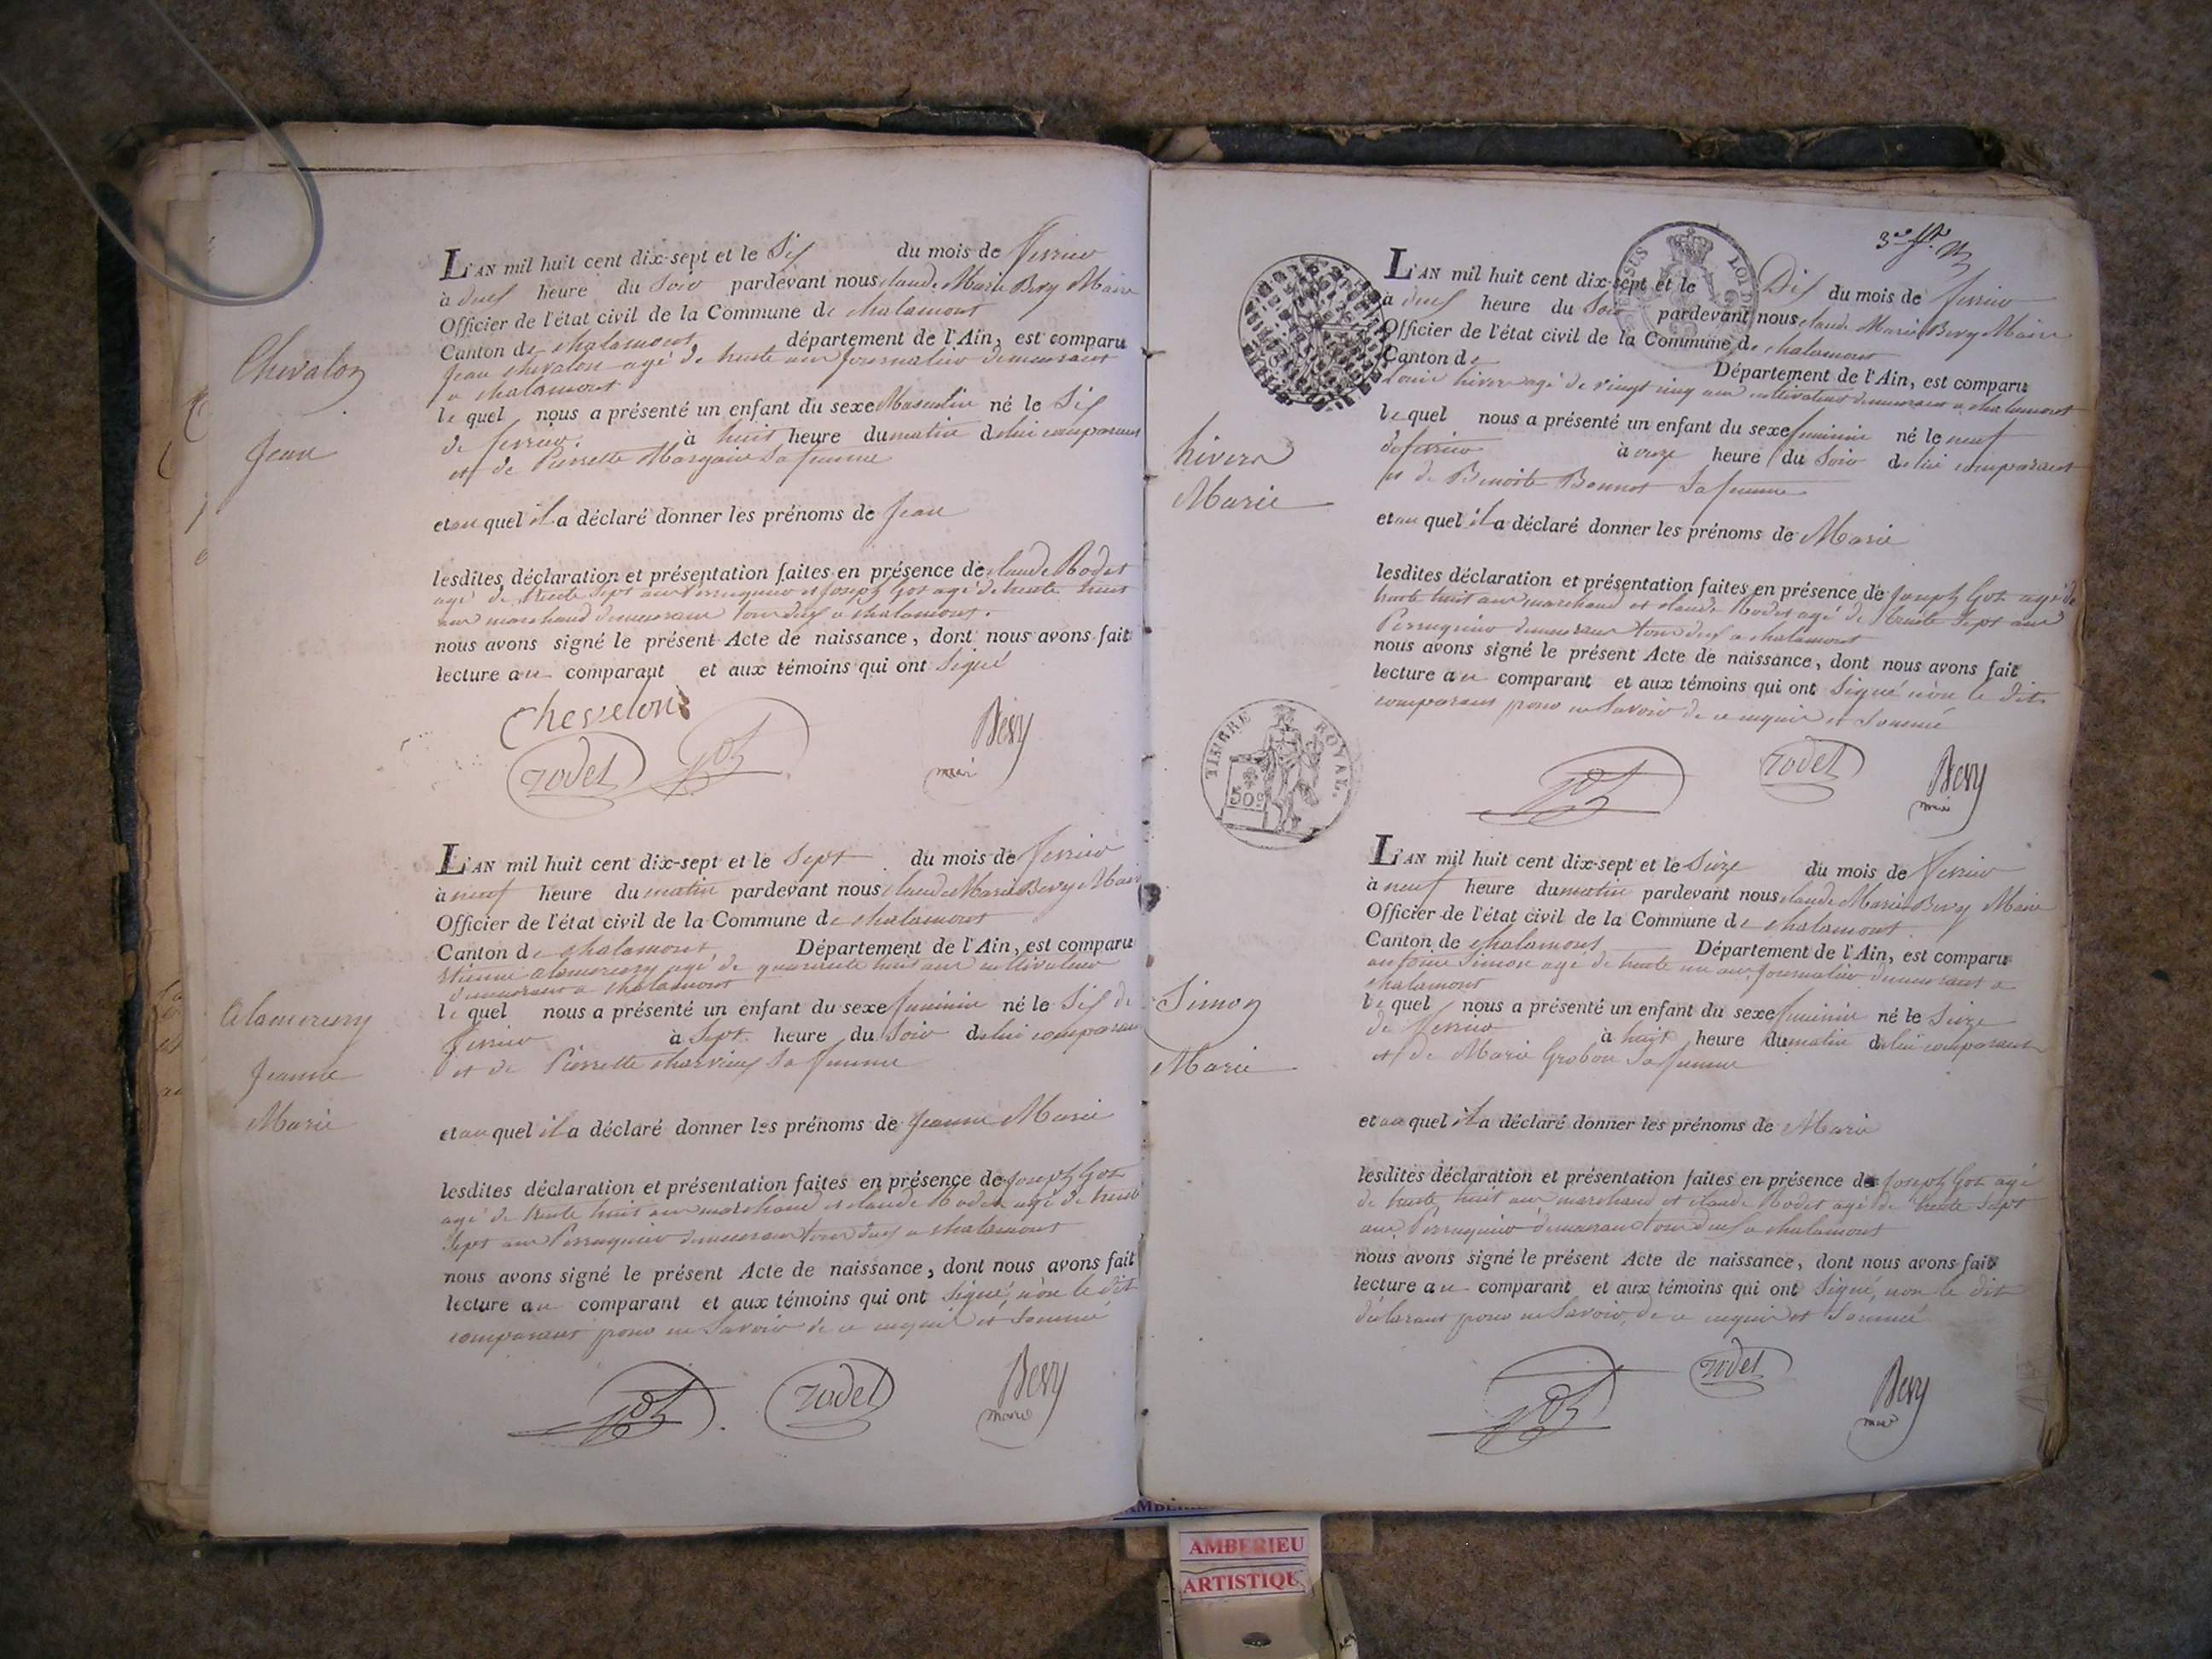 Chevalon
Jean
L'AN mil huit cent dix-sept et le Six du mois de fevrier
à deux heure du Soir pardevant nous claude Marie Bevy Maire
Officier de l'état civil de la Commune de chalamont
Canton de chalamont département de l'Ain, est comparu
Jean chevalon agé de trente ans Journalier demeurant
a chalamont
le quel nous a présenté un enfant du sexe Masculin né le Six
de fevrier à huit heure du matin de lui comparant
et de Pierrette sa femme
et au quel il a déclaré donner les prénoms de Jean
lesdites déclaration et présentation faites en présence de claude Rodet
agé de trente Sept ans Perruquier et Joseph Got agé de trente huit
ans marchand demeurant tous deux a chalamont.
nous avons signé le présent Acte de naissance, dont nous avons fait
lecture au comparant et aux témoins qui ont Signé
Chevelon
rodet Got Bevy
maire
alamercery
Jeanne
Marie
L'AN mil huit cent dix-sept et le Sept du mois de fevrier
à neuf heure du matin pardevant nous claude Marie Bevy Maire
Officier de l'état civil de la Commune de chalamont
Canton de chalamont Département de l'Ain, est comparu
Etienne alamercery agé de quarante huit ans cultivateur
demeurant a chalamont
le quel nous a présenté un enfant du sexe feminin né le Six de
fevrier à Sept heure du Soir de lui comparant
et de Pierrette sa femme
et au quel il a déclaré donner les prénoms de Jeanne Marie
lesdites déclaration et présentation faites en présence de Joseph Got
agé de trente huit ans marchand et claude Rodet agé de trente
Sept ans Perruquier demeurant tous deux a chalamont
nous avons signé le présent Acte de naissance, dont nous avons fait
lecture au comparant et aux témoins qui ont Signé, non le dit
comparant pour ne Savoir de ce enquis et Sommé
Got rodet Bevy
maire
3me
hivers
Marie
TIMBRE ROYAL.
50c
L'AN mil huit cent dix-sept et le Dix du mois de fevrier
à deux heure du Soir pardevant nous claude Marie Bevy Maire
Officier de l'état civil de la Commune de chalamont
Canton de Département de l'Ain, est comparu
Louis hivers agé de vingt cinq ans cultivateur demeurant a chalamont
le quel nous a présenté un enfant du sexe feminin né le neuf
de fevrier à onze heure du Soir de lui comparant
et de Benoite Bonnet sa femme
et au quel il a déclaré donner les prénoms de Marie
lesdites déclaration et présentation faites en présence de Joseph Got agé de
trente huit ans marchand et claude Rodet agé de trente Sept ans
Perruquier demeurant tous deux a chalamont
nous avons signé le présent Acte de naissance, dont nous avons fait
lecture au comparant et aux témoins qui ont Signé non le dit
comparant pour ne Savoir de ce enquis et Sommé
Got rodet Bevy
maire
Simon
Marie
L'AN mil huit cent dix-sept et le Seize du mois de fevrier
à neuf heure du matin pardevant nous claude Marie Bevy Maire
Officier de l'état civil de la Commune de chalamont
Canton de chalamont Département de l'Ain, est comparu
antoine Simon agé de trente un ans Journalier demeurant a
chalamont
le quel nous a présenté un enfant du sexe feminin né le Seize
de fevrier à huit heure du matin de lui comparant
et de Marie Grobon sa femme
et au quel il a déclaré donner les prénoms de Marie
lesdites déclaration et présentation faites en présence de Joseph Got agé
de trente huit ans marchand et claude Rodet agé de trente Sept
ans Perruquier demeurant tous deux a chalamont
nous avons signé le présent Acte de naissance, dont nous avons fait
lecture au comparant et aux témoins qui ont Signé, non le dit
déclarant pour ne Savoir, de ce enquis et Sommé
Got rodet Bevy
maire
AMBERIEU
ARTISTIQU